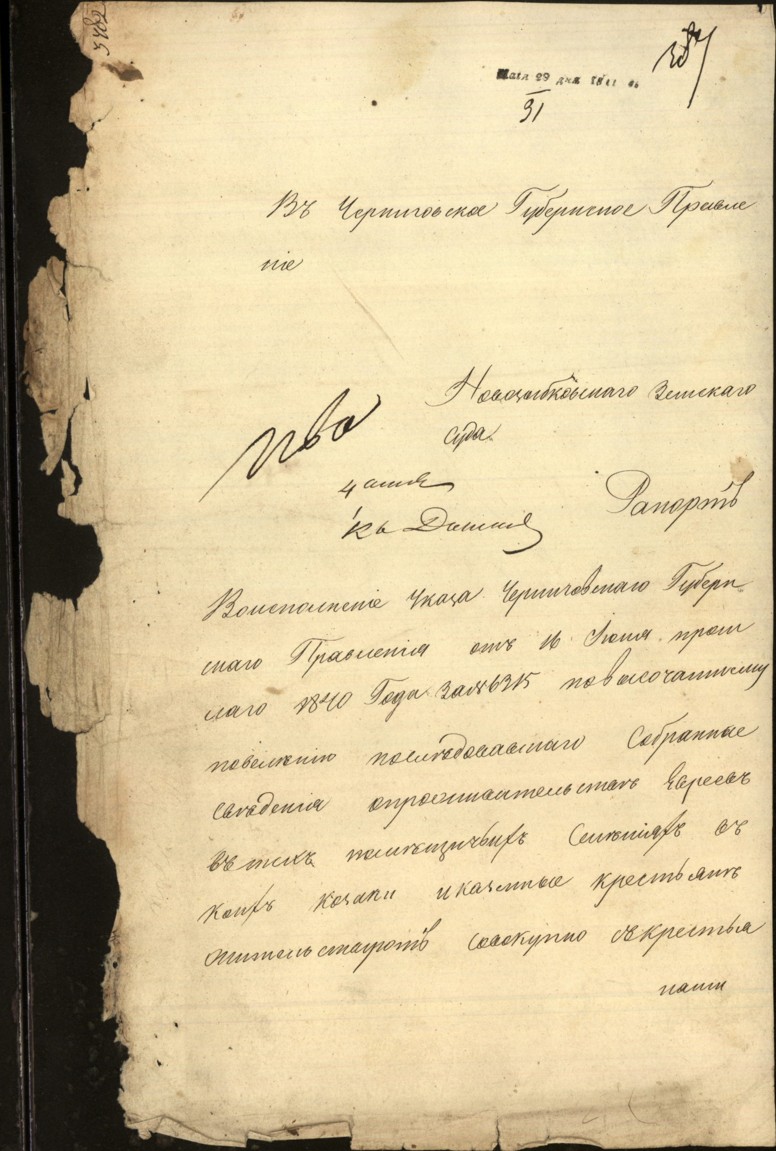 Мая 29 дня 1841 го
31
Въ Черниговское Губернское Правле
ніе
Новозыбковскаго Земскаго
Суда
Рапортъ
Воисполненіе Указа Черниговскаго Губерн
скаго Правленія отъ 16 Іюня прош
лаго 1840 Года За № 6315 повысочайшему
повеленію последовавшаго Собранные
Сведенія опрожительстве Евреевъ
Втехъ помещичьихъ Селеніяхъ въ
коихъ козаки иказенные крестьяне
жительствуютъ совокупно съкрестья
нами